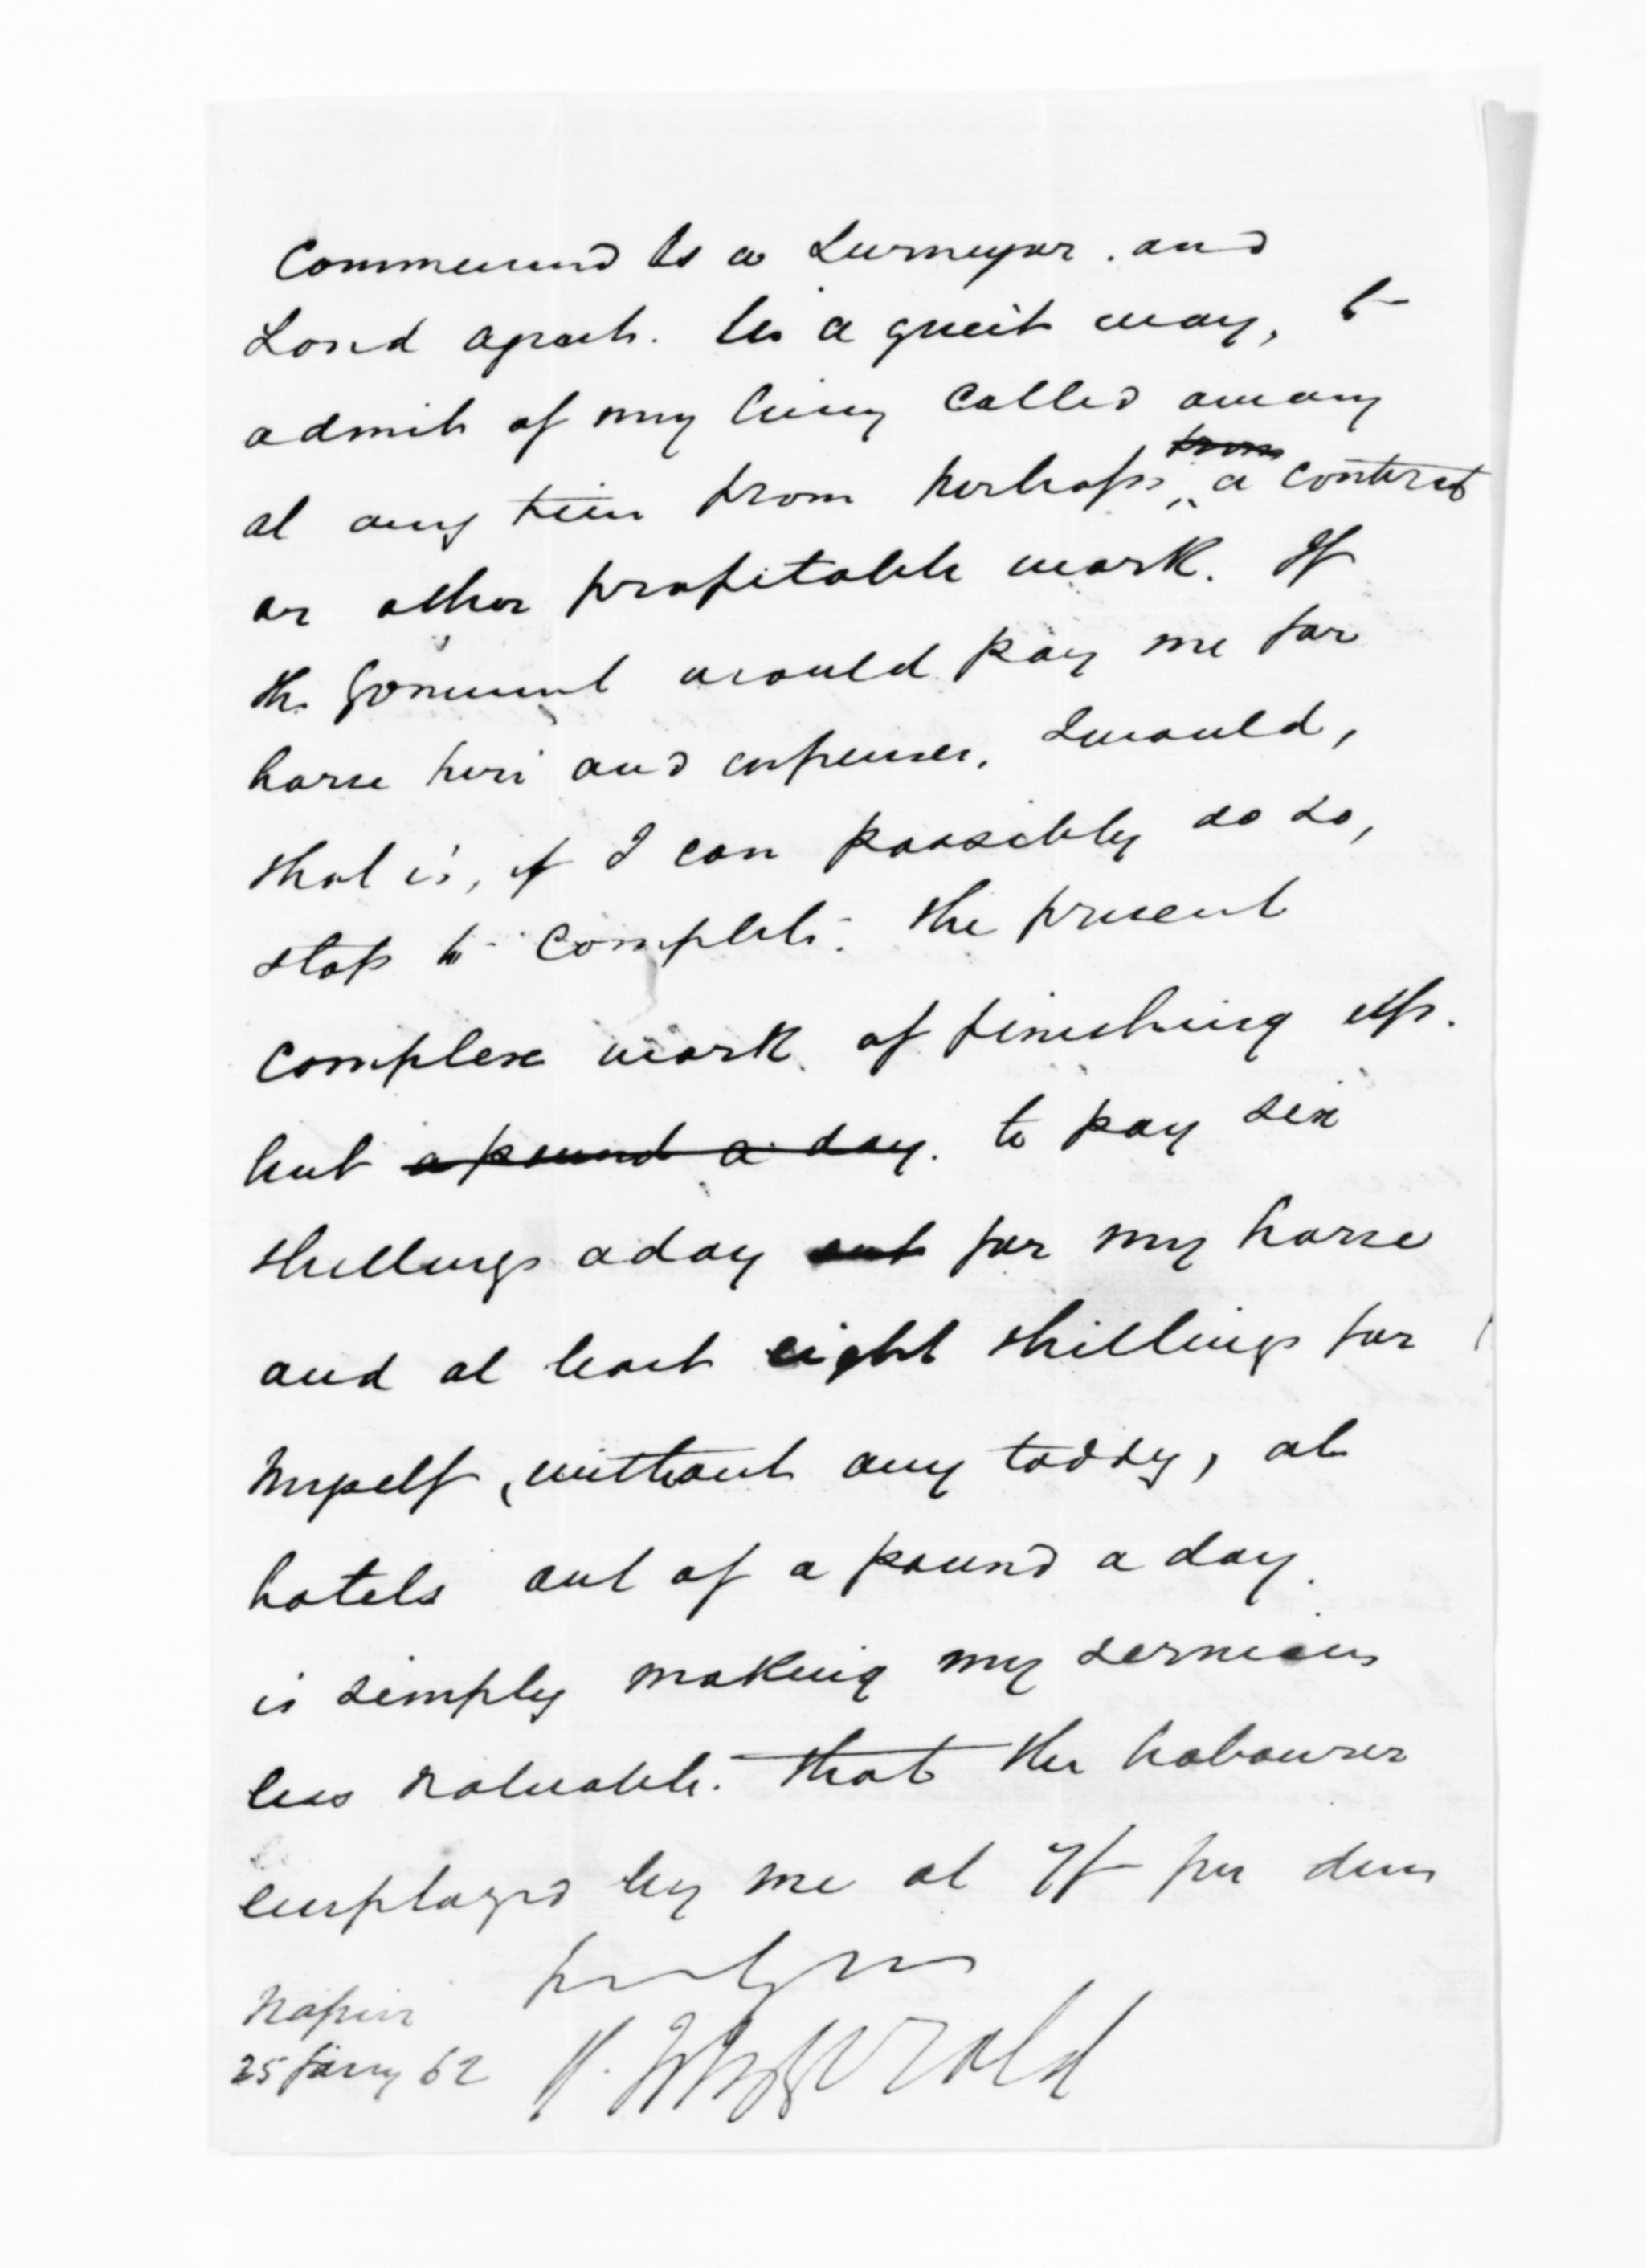 commenced as a Surveyor and
Land agent. in a quiet way, to
admit of my being called away
at any time from perhaps from a contract
or other profitable work. If
the Government would pay me for
horse hire and expenses, I would,
that is, if I can possibly do so,
stop to complete the present
complex work of finishing up.
but a pound a day. to pay six
shillings a day out for my horse
and at least eight shillings for
myself, without any toddy, at
hotels out of a pound a day.
is simply making my services
less valuable. that the labourer
employed by me at 7/- per diem
Napier
25 Jany 62 H. Fitzgerald